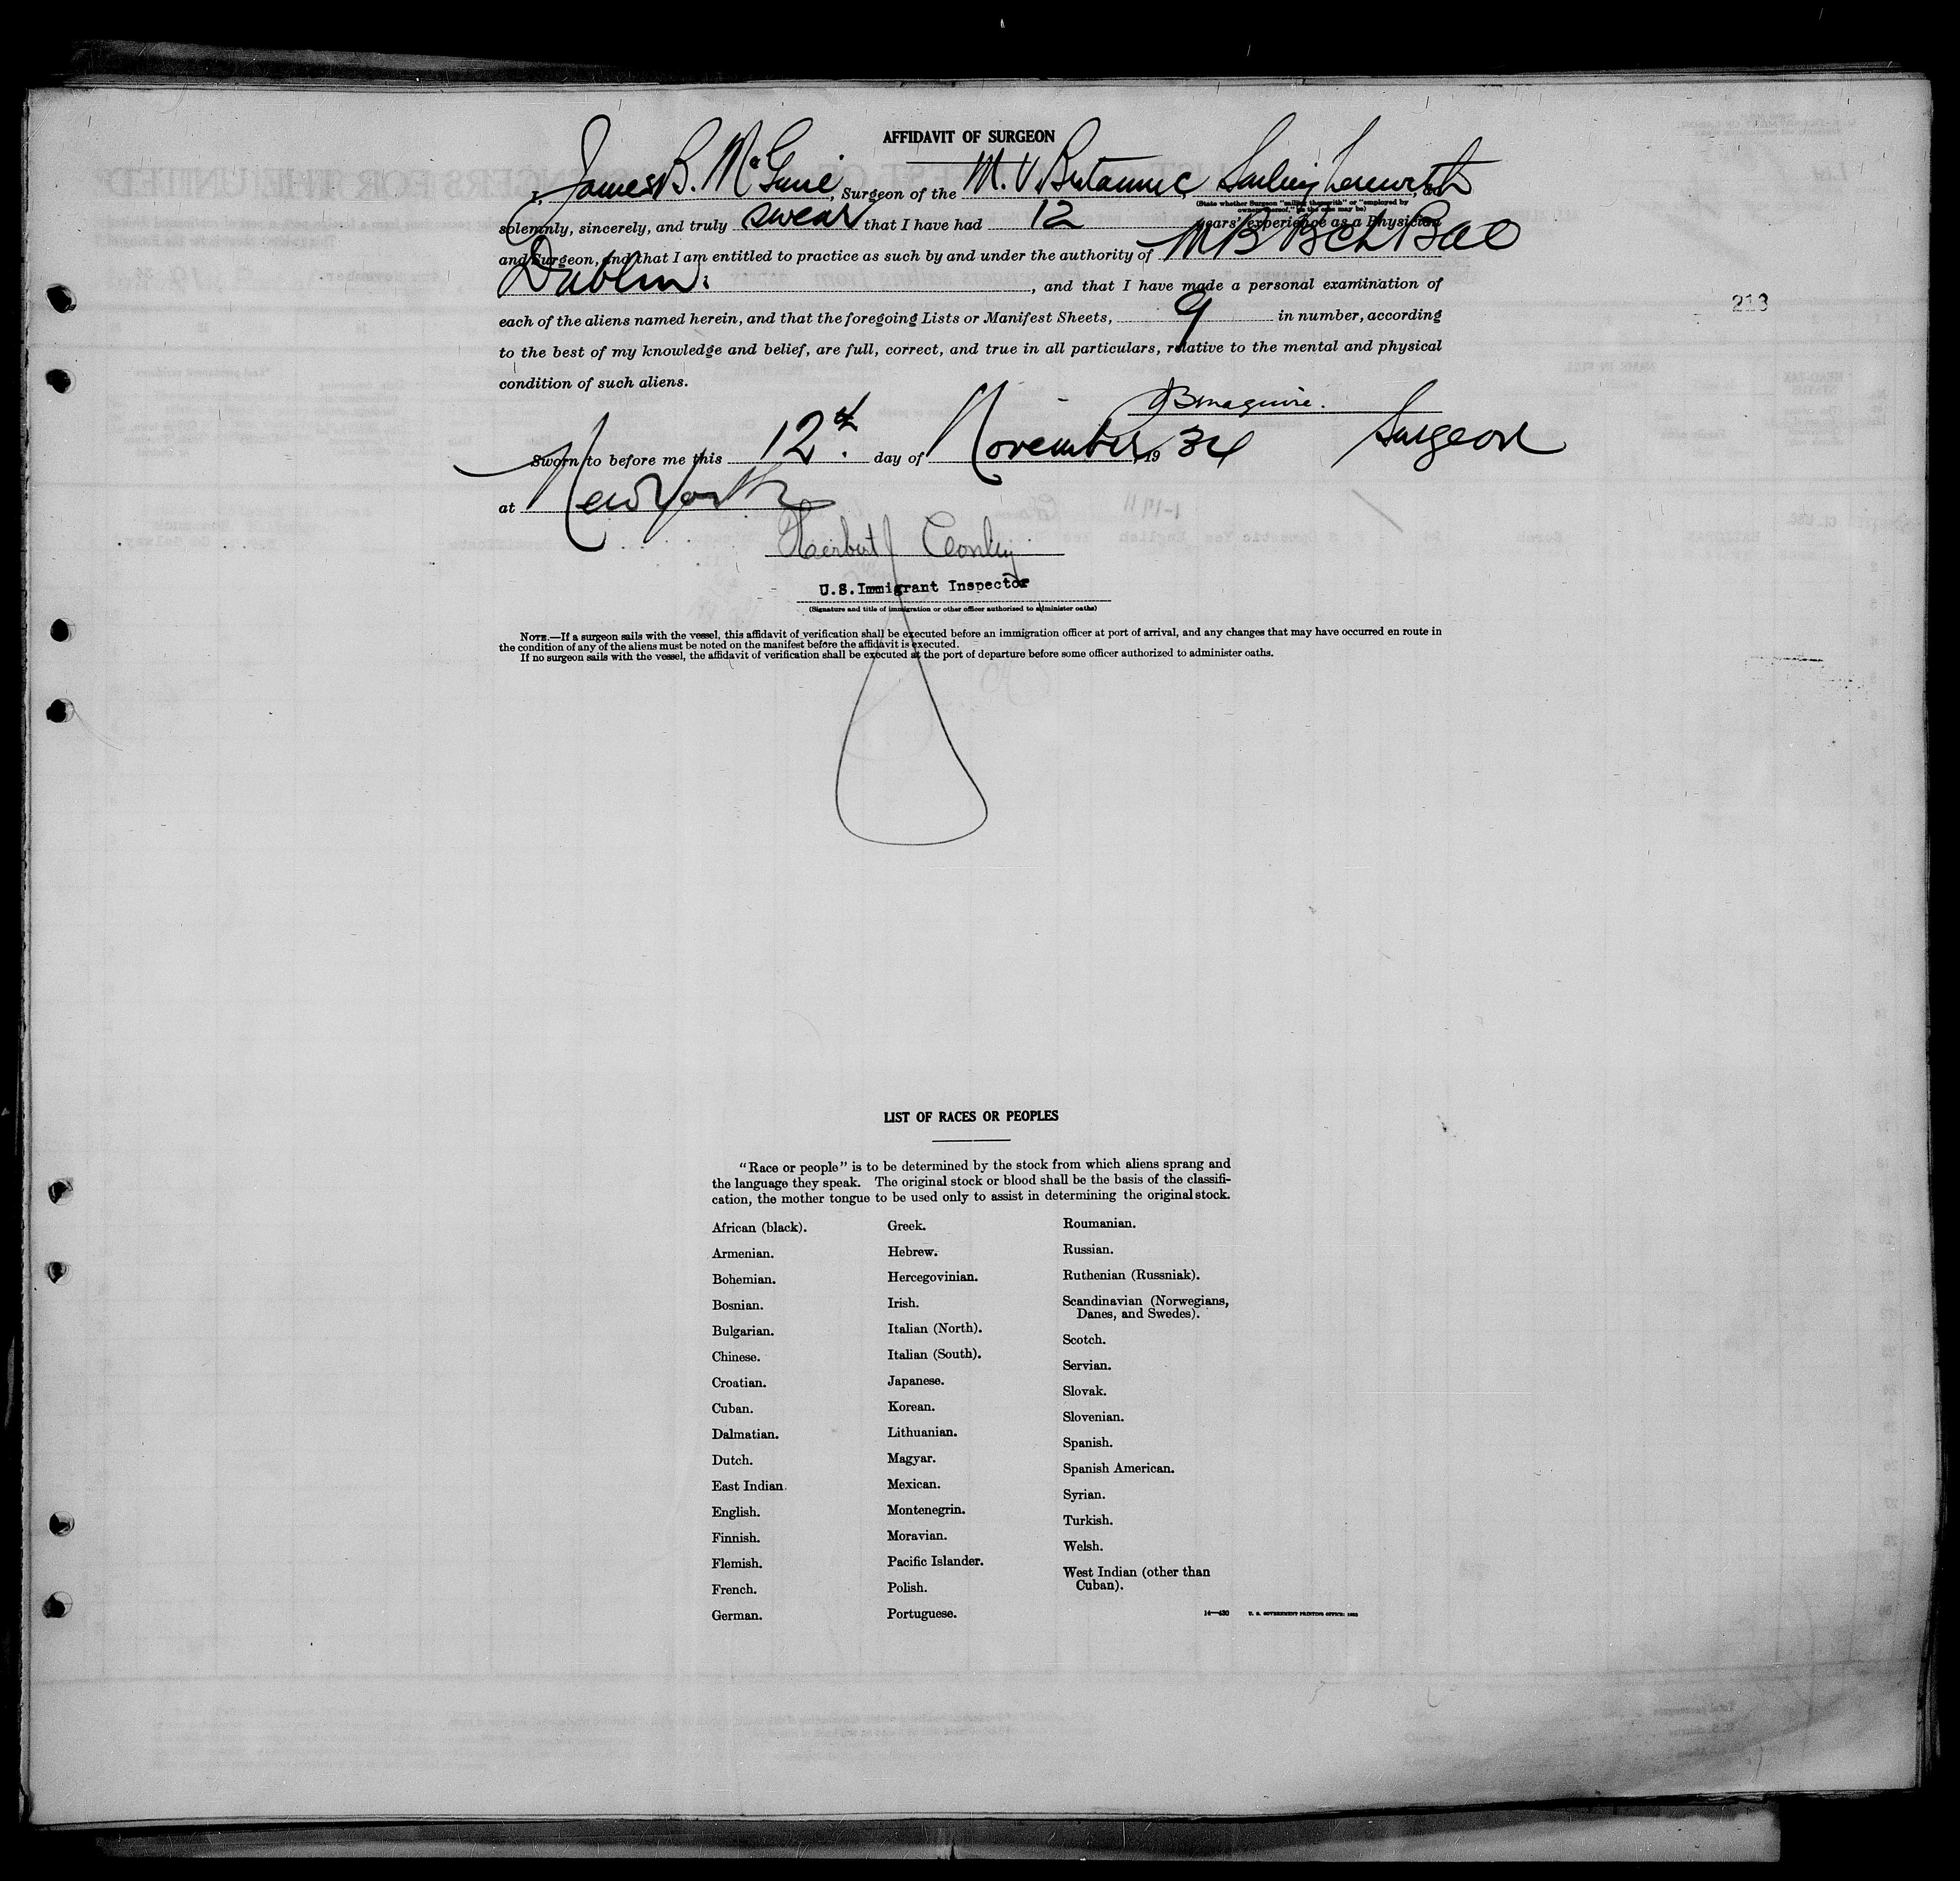 AFFIDAVIT OF SURGEON
I, James B. McGuire, Surgeon of the M. V. Britannic Sailing herewith, do
(State whether Surgeon "sailing therewith" or "employed by
owners thereof," as the case may be)
solemnly, sincerely, and truly swear that I have had 12 years' experience as a Physician
and Surgeon, and that I am entitled to practice as such by and under the authority of MB BCh BAO
Dublin, and that I have made a personal examiination of
each of the aliens named herein, and that the foregoing Lists or Manifest Sheets, 9 in number, according
to the best of my knowledge and belief, are full, correct, and true in all particulars, relative to the mental and physical
condition of such aliens.
JBmaguire.
Surgeon
Sworn to before me this 12th. day of November, 1934
at New York
Herbert J Conley
U.S.Immigrant Inspector
(Signature and title of immigration or other officer authorized to administer oaths)
NOTE.—If a surgeon sails with the vessel, this affidavit of verification shall be executed before an immigration officer at port of arrival, and any changes that may have occurred en route in
the condition of any of the aliens must be noted on the manifest before the affidavit is executed.
If no surgeon sails with the vessel, the affidavit of verification shall be executed at the port of departure before some officer authorized to administer oaths.
213
LIST OF RACES OR PEOPLES
"Race or people" is to be determined by the stock from which aliens sprang and
the language they speak. The original stock or blood shall be the basis of the classifi-
cation, the mother tongue to be used only to assist in determining the original stock.
African (black).
Armenian.
Bohemian.
Bosnian.
Bulgarian.
Chinese.
Croatian.
Cuban.
Dalmatian.
Dutch.
East Indian.
English.
Finnish.
Flemish.
French.
German.
Greek.
Hebrew.
Hercegovinian.
Irish.
Italian (North).
Italian (South).
Japanese.
Korean.
Lithuanian.
Magyar.
Mexican.
Montenegrin.
Moravian.
Pacific Islander.
Polish.
Portuguese.
Roumanian.
Russian.
Ruthenian (Russniak).
Scandinavian (Norwegians,
Danes, and Swedes).
Scotch.
Servian.
Slovak.
Slovenian.
Spanish.
Spanish American.
Syrian.
Turkish.
Welsh.
West Indian (other than
Cuban).
14—430 U. S. GOVERNMENT PRINTING OFFICE: